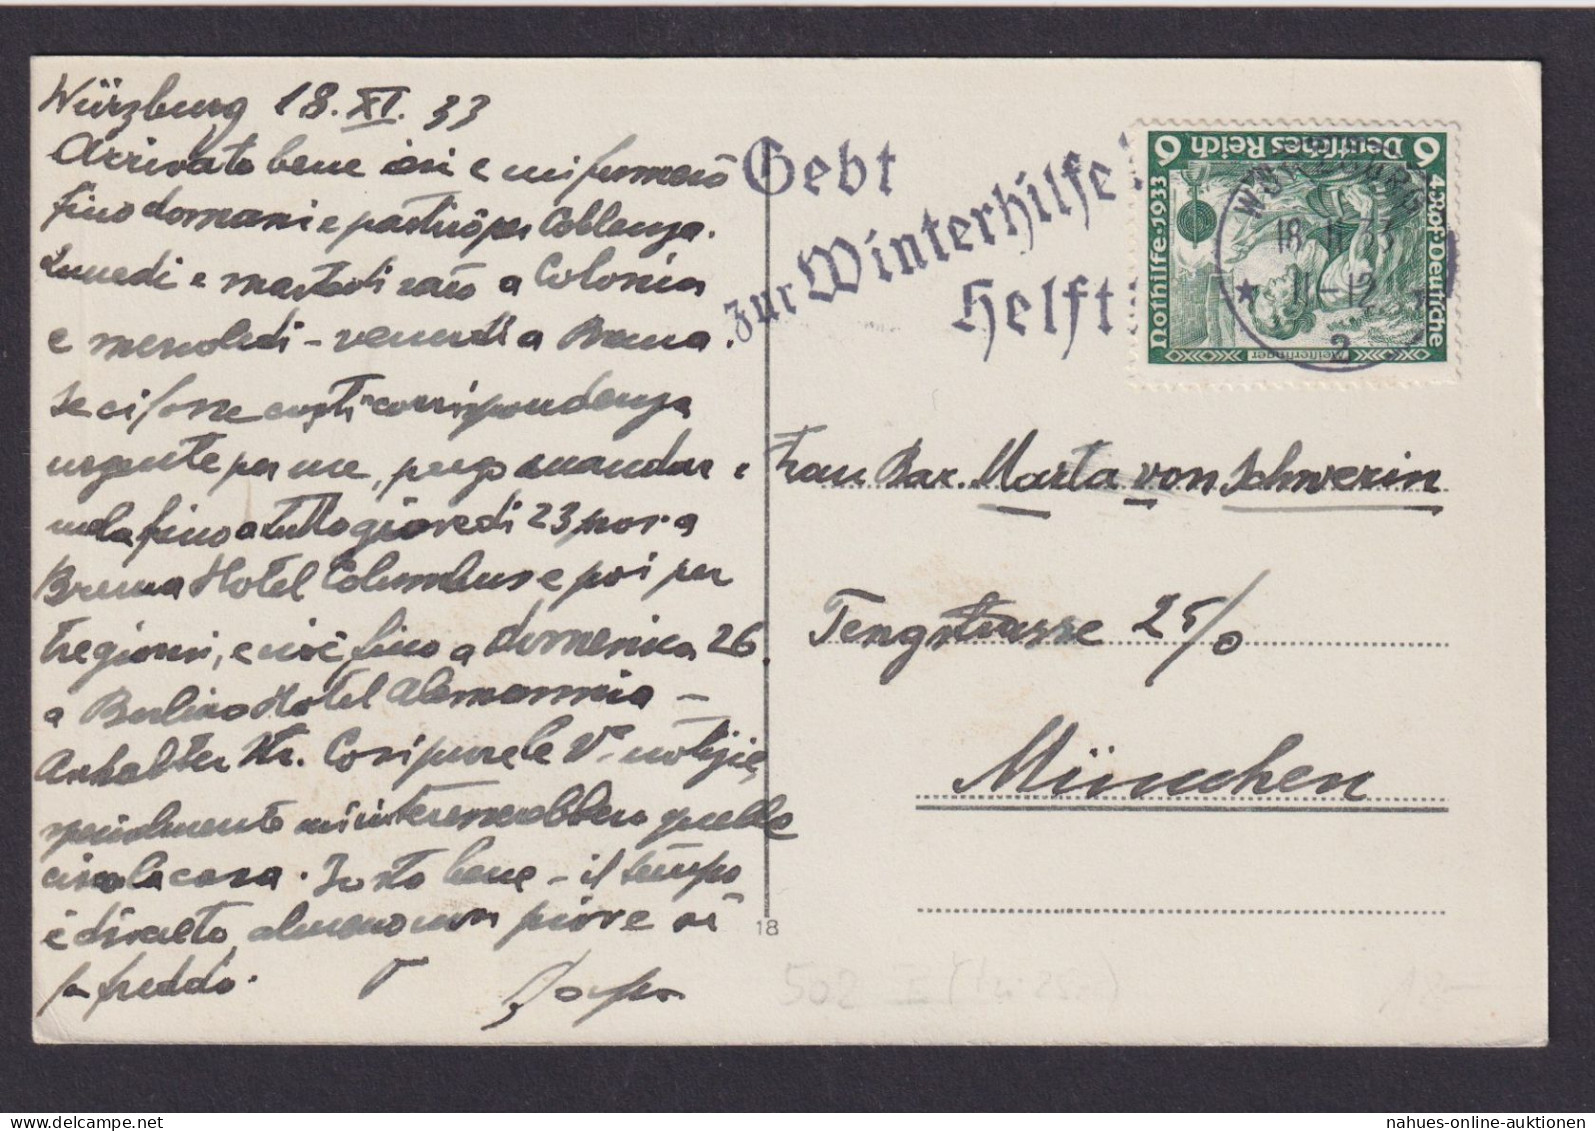 Würzburg 18.XI.33
Arrivato bene ieri e mi fermerò
fino domani e partirò per Coblenza.
Lunedi e martedi sarò a Colonia
e mercoledi - venerdi a Brema.
Se ci fosse costi corrispondenza
urgente per me, prego mandar
mela fino a tutto giovedi 23 nov. a
Brema Hotel Columbus e poi per
tre giorni, e cioè fino a domenica 26
a Berlino Hotel Alemannia -
Anhalter Str. Così pure le notizie,
specialmente mi interesserebbero quelle
circa la casa. Io sto bene - il tempo
è discreto, almeno non piove
fa freddo.
Gebt
zur Winterhilfe!
Helft
6 Deutsches Reich 6
Nothilfe·1933
4 Rpf·Deutsche
Meistersinger
WÜRZBURG
18.11.33
11-12
* 2 *
Frau Bar. Marta von Schwerin
Tengstrasse 25/0
München
18
502
nahues-online-auktionen